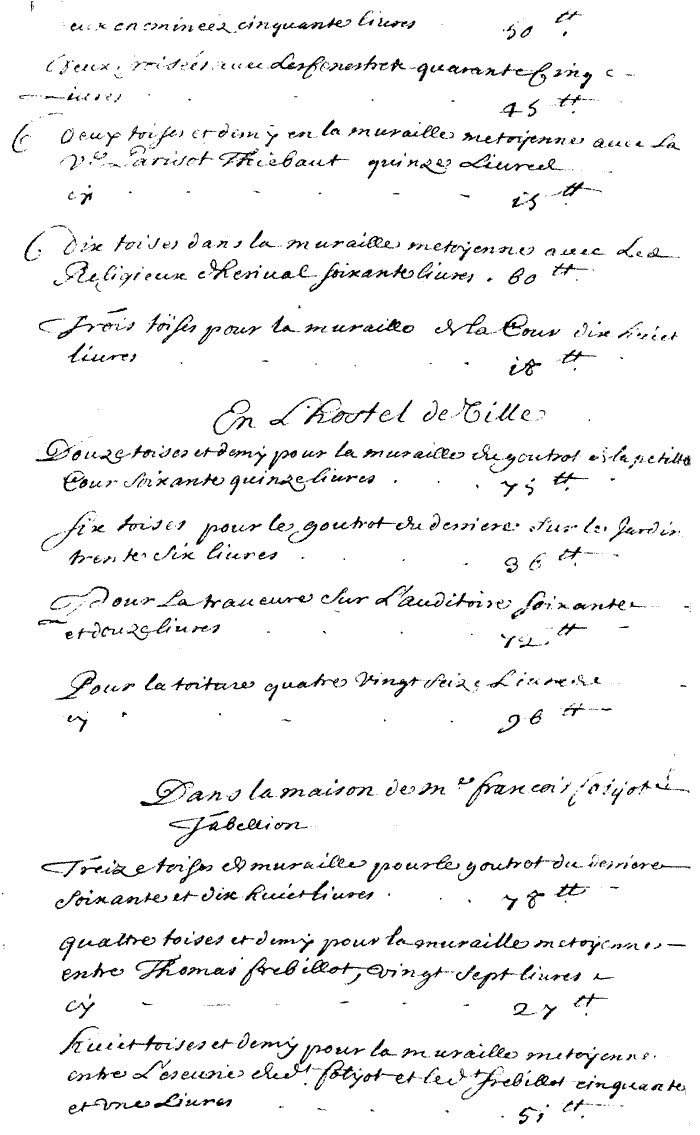 eux cheminéez cinquante liures 50 tt.
Deux croisées auec Les fenestres quarante Cinq
liures 45 tt.
deux toises et demÿ en la muraille metoÿenne auec La
Vve Parisot Thiebaut quinze Liures
cy 15 tt
Dix toises dans la muraille metoÿenne auec Les
Religieux d'herival soixante liures . 60 tt.
Trois toises pour la muraille de la Cour dix huict
liures 18 tt.
En L'hostel de Ville
Douze toises et demÿ pour la muraille du goutrot de la petitte
Cour soixante quinze liures 75 tt.
six toises pour le goutrot du derriere sur le Jardin
trente six liures 36 tt.
Pour La traueure sur L'auditoire soixante
et douze liures 72 tt
Pour la toiture quatre vingt seize Liures
cy 96 tt
Dans la maison de me francois
Tabellion
Treize toises de muraille pour le goutrot du derriere
soixante et dix huict liures 78 tt
quattre toises et demÿ pour la muraille metoÿenne
entre Thomas frebillot, vingt sept liures
cÿ 27 tt.
huict toises et demÿ pour la muraille metoÿenne
entre L'escurie dud.t et led.t frebillot cinquante
et vne Liures 51 tt.